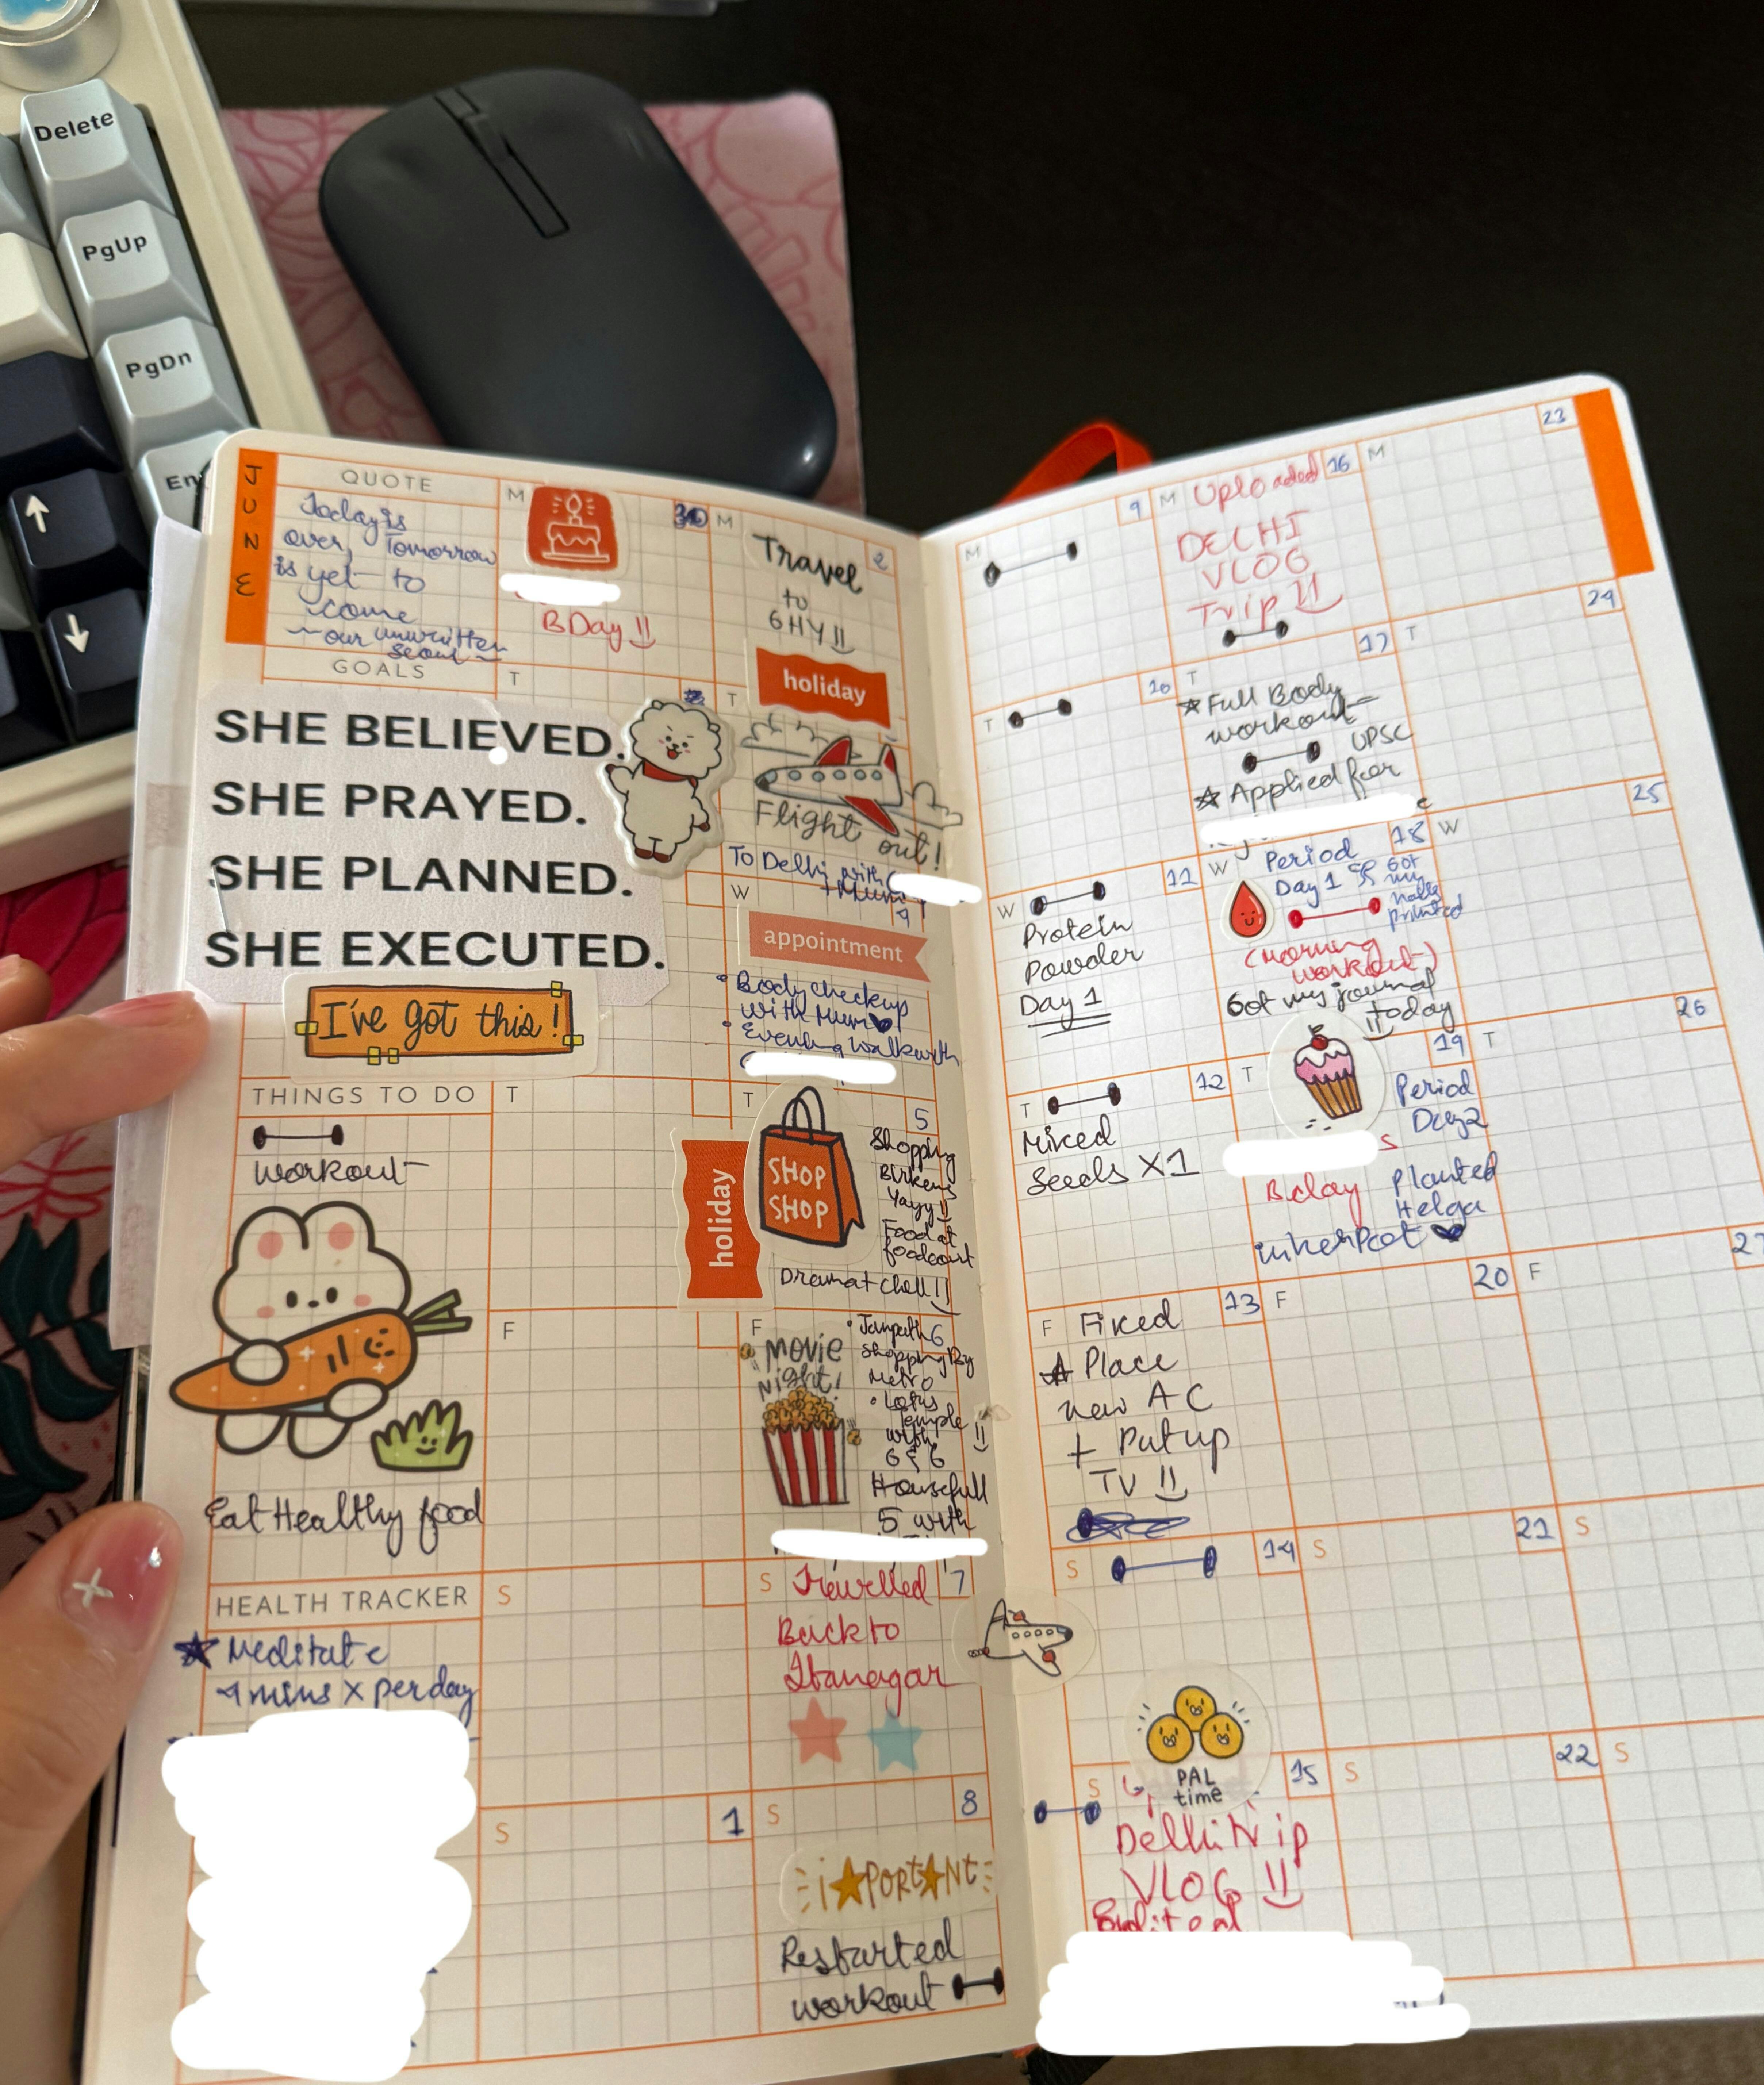 Delete
PgUp
PgDn
En
JUNE
QUOTE
Today is
over, Tomorrow
is yet to
come
~ our unwritten
seoul ~
GOALS
SHE BELIEVED.
SHE PRAYED.
SHE PLANNED.
SHE EXECUTED.
I've got this!
THINGS TO DO
workout
Eat Healthy food
HEALTH TRACKER
★ Meditate
4 mins x per day
M
30
BDay !!
T
T
F
S
S
1
M
2
Travel
to
GHY !!
holiday
T
Flight out!
To Delhi with
+ Mum
W
4
appointment
• Body checkup
with Mum
• Evening walk with
T
5
holiday
SHOP
SHOP
Shopping
Birkens
Yayy !!
Food at
foodcourt
F
6
MOVIE
Night!
• Janpath
Shopping By
Metro
• Lotus
Temple
with
G & G
Housefull
5 with
S
7
Travelled
Back to
Itanagar
S
8
iMPORTANt
Restarted
workout
M
9
T
10
W
11
Protein
Powder
Day 1
T
12
Mixed
Seeds X1
F
13
Fixed
★ Place
new AC
+ Put up
TV !!
S
14
S
15
PAL
time
Delhi Trip
VLOG !!
Edited
M
16
Uploaded
DELHI
VLOG
Trip !!
T
17
★ Full Body
workout
UPSC
★ Applied for
W
18
Period
Day 1
Got
my
nails
printed
(Morning
workout)
Got my journal
today
T
19
Period
Day2
s
Bday
Planted
Helga
in her Pot
F
20
S
21
S
22
M
23
T
24
W
25
T
26
F
27
S
S